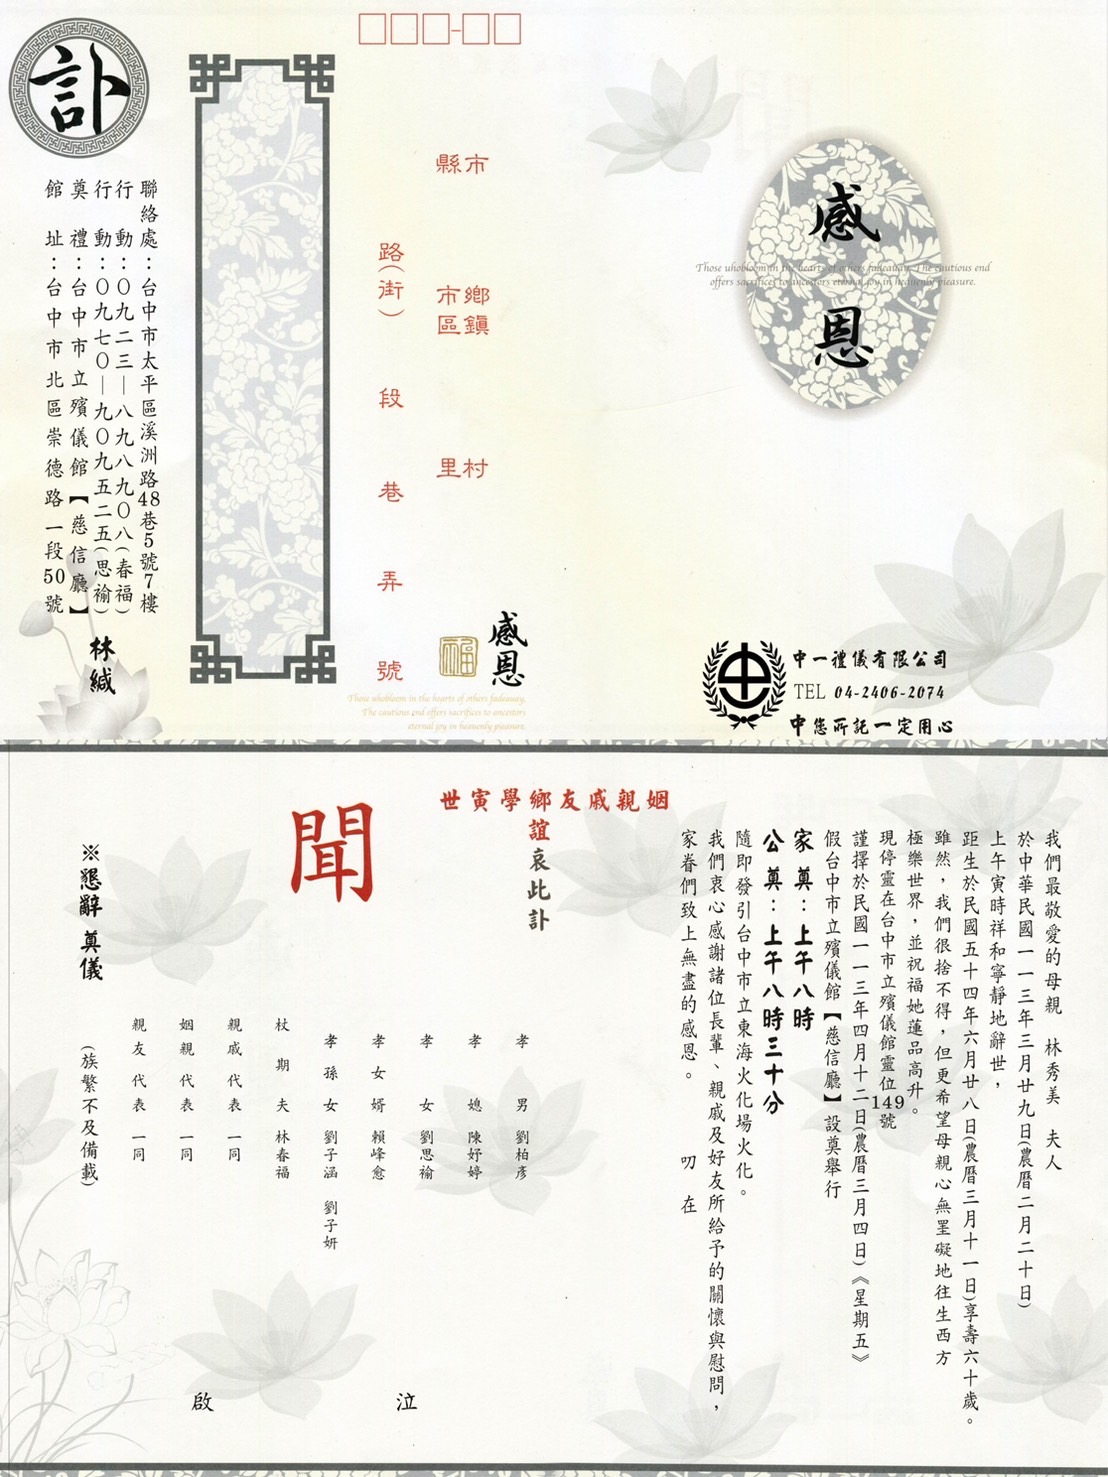 訃
聯絡處：台中市太平區溪洲路48巷5號7樓
行動：０九二三—八九八九０八(春福)
行動：０九七０—九０九五二五(思褕)
奠禮：台中市立殯儀館【慈信廳】
館址：台中市北區崇德路一段50號
林緘
縣市
鄉鎮
市區
村里
路(街)　段　巷　弄　號
感恩
福
Those whobloom in the hearts of others fadeaway.
The cautious end offers sacrifices to ancestors
eternal joy in heavenly pleasure.
感恩
Those whobloom in the hearts of others fadeaway. The cautious end
offers sacrifices to ancestors eternal joy in heavenly pleasure.
中一禮儀有限公司
TEL 04-2406-2074
中您所託一定用心
我們最敬愛的母親　林秀美　夫人
於中華民國一一三年三月廿九日(農曆二月二十日)
上午寅時祥和寧靜地辭世，
距生於民國五十四年六月廿八日(農曆三月十一日)享壽六十歲。
雖然，我們很捨不得，但更希望母親心無罣礙地往生西方
極樂世界，並祝福她蓮品高升。
現停靈在台中市立殯儀館靈位149號
謹擇於民國一一三年四月十二日(農曆三月四日)《星期五》
假台中市立殯儀館【慈信廳】設奠舉行
家奠：上午八時
公奠：上午八時三十分
隨即發引台中市立東海火化場火化。
我們衷心感謝諸位長輩、親戚及好友所給予的關懷與慰問，
家眷們致上無盡的感恩。　叨在
姻親戚友鄉學寅世
誼哀此訃
聞
孝男　劉柏彥
孝媳　陳妤婷
孝女　劉思褕
孝女婿　賴峰愈
孝孫女　劉子涵　劉子妍
杖期夫　林春福
親戚代表　一同
姻親代表　一同
親友代表　一同
(族繁不及備載)
泣啟
※懇辭奠儀